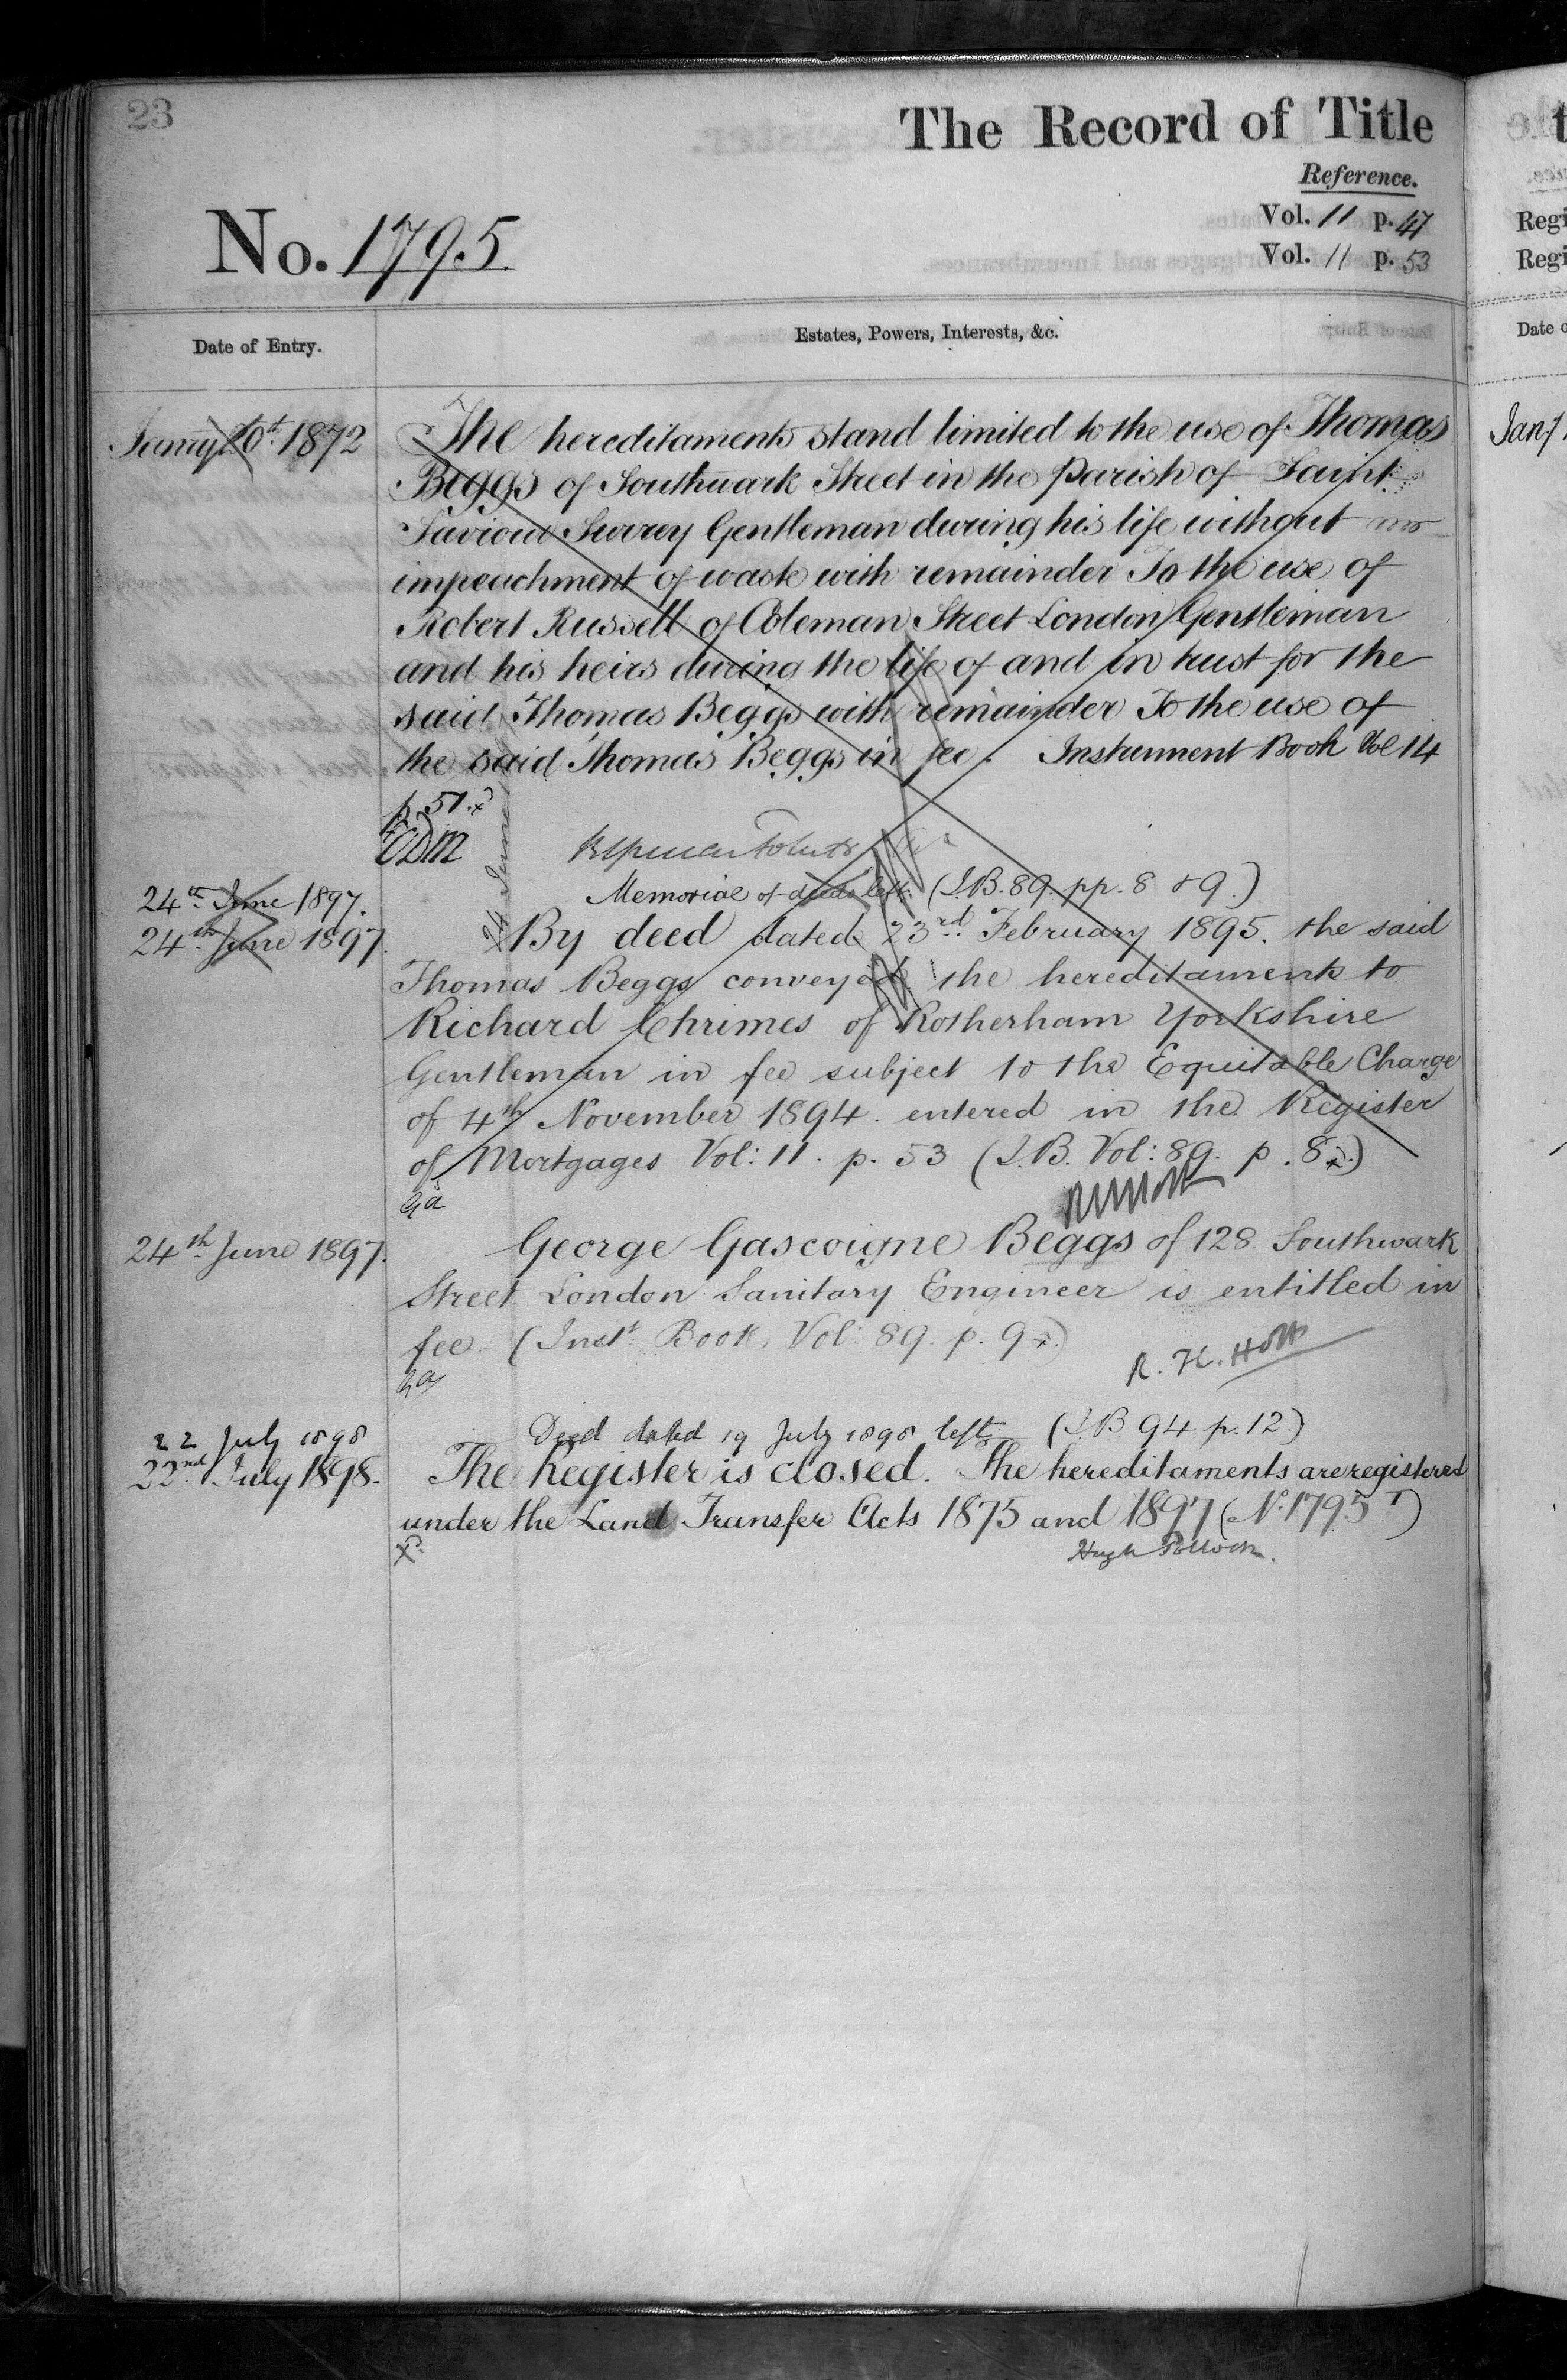 23
The Record of Title
Reference.
Vol. 11 p. 47
No. 1795.
Vol. 11 p. 53
Date of Entry.
Estates, Powers, Interests, &c.
Janry 20t. 1872
The hereditaments stand limited to the use of Thomas
Beggs of Southwark Street in the Parish of Saint
Saviour Surrey Gentleman during his life without
impeachment of waste with remainder To the use of
Robert Russell of Coleman Street London Gentleman
and his heirs during the life of and in trust for the
said Thomas Beggs with remainder To the use of
the said Thomas Beggs in fee. Instrument Book Vol 14
p. 51.
24 June
24th June 1897.
Memorial of deeds left (I.B. 89. pp. 8 & 9.)
24th June 1897.
By deed dated 23rd February 1895. the said
Thomas Beggs conveyed the hereditaments to
Richard Chrimes of Rotherham Yorkshire
Gentleman in fee subject to the Equitable Charge
of 4th November 1894. entered in the Register
of Mortgages Vol: 11. p. 53 (I.B. Vol: 89. p. 8.)
24th June 1897.
George Gascoigne Beggs of 128 Southwark
Street London Sanitary Engineer is entitled in
fee (Inst. Book, Vol: 89. p. 9.)
R. H. Holt
22 July 1898
Deed dated 19 July 1898 left (I.B. 94 p. 12.)
22nd July 1898.
The Register is closed. The hereditaments are registered
under the Land Transfer Acts 1875 and 1897 (No. 1795 T)
Hugh Pollock.
Regi
Regi
Date o
Jany